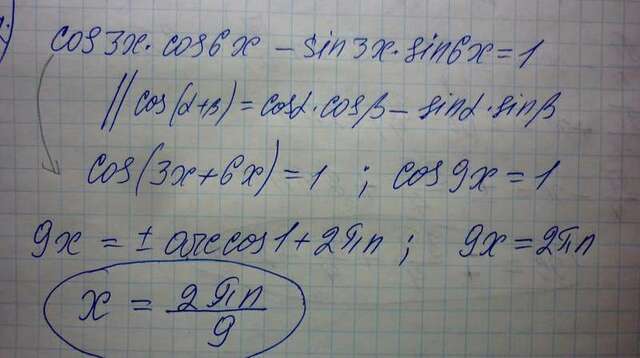 cos3x·cos6x - sin3x·sin6x=1
// cos(α+β) = cosα·cosβ - sinα·sinβ
cos(3x+6x)=1 ; cos9x=1
9x = ± arccos1+2πn ; 9x=2πn
x = 2πn/9